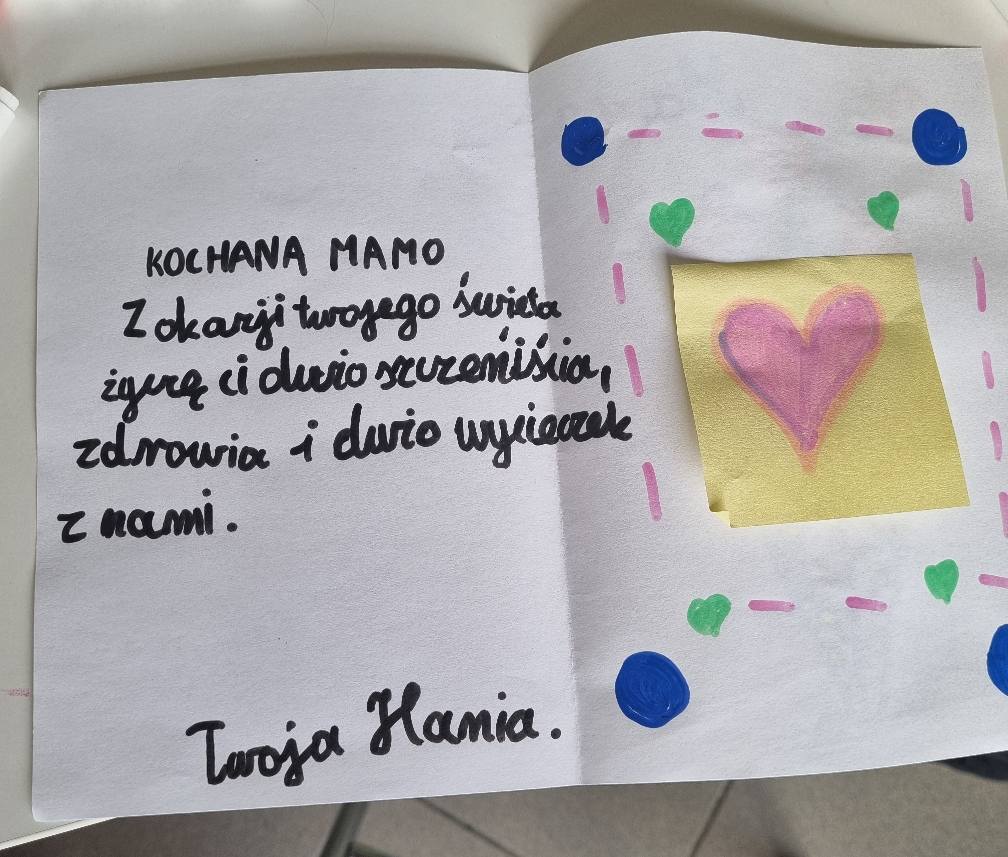 KOCHANA MAMO
Z okazji twojego święta
życzę ci dużo szczeniścia,
zdrowia i dużo wycieczek
z nami.
Twoja Hania.